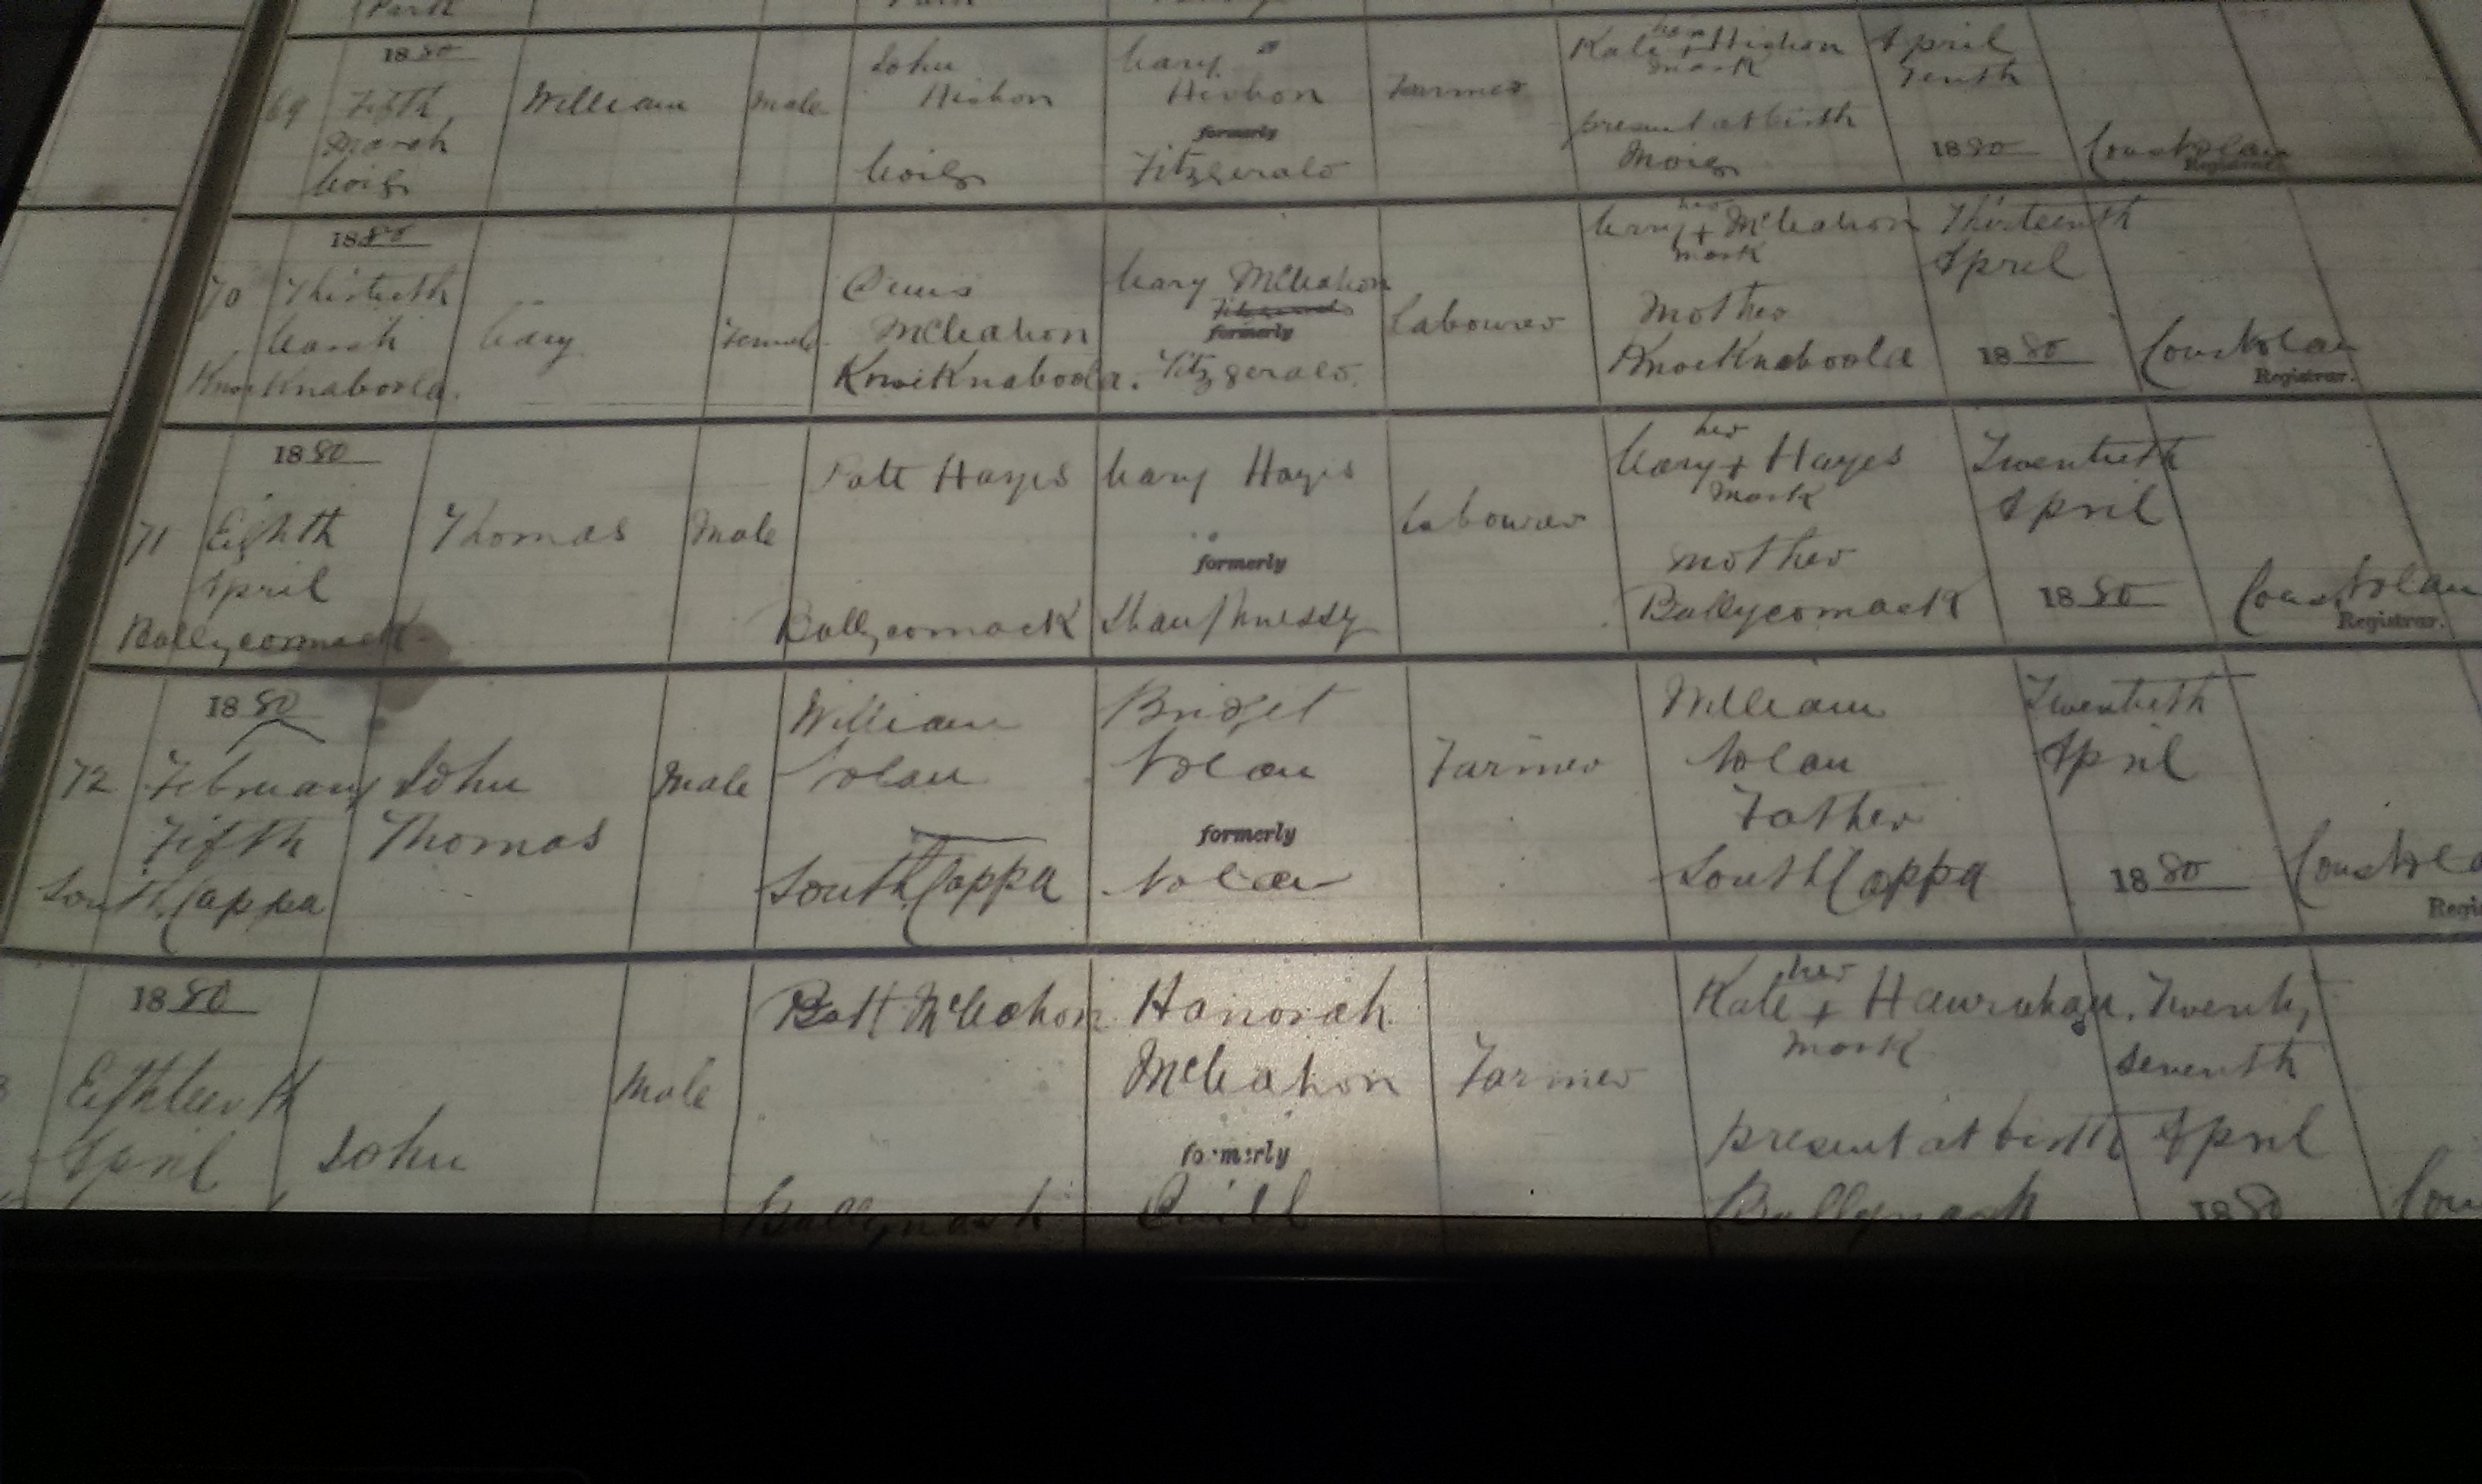 1880
69 Fifth March Moig
William
Male
John Hishon Moig
Mary Hishon formerly Fitzgerald
Farmer
Kate her + mark Hishon present at birth Moig
April Tenth 1880
Registrar.
1880
70 Thirtieth March KnocKnaboola.
Mary
Female
Denis McMahon KnocKnaboola.
Mary McMahon formerly Fitzgerald.
Labourer
Mary her + mark McMahon Mother KnocKnaboola
Thirteenth April 1880
Registrar.
1880
71 Eighth April Ballycormack
Thomas
Male
Patt Hayes Ballycomack
Mary Hayes formerly Shaughnessy
Labourer
Mary her + mark Hayes mother Ballycomack
Twentieth April 1880
Nolan Registrar.
1880
72 February Fifth South Cappa
John Thomas
Male
William Nolan South Cappa
Bridget Nolan formerly Nolan
Farmer
William Nolan Father South Cappa
Twentieth April 1880
1880
Eighteenth April
John
Male
Patt McMahon
Hanorah McMahon formerly Quill
Farmer
Kate her + mark Hanrahan. present at birth
Twenty seventh April 1880